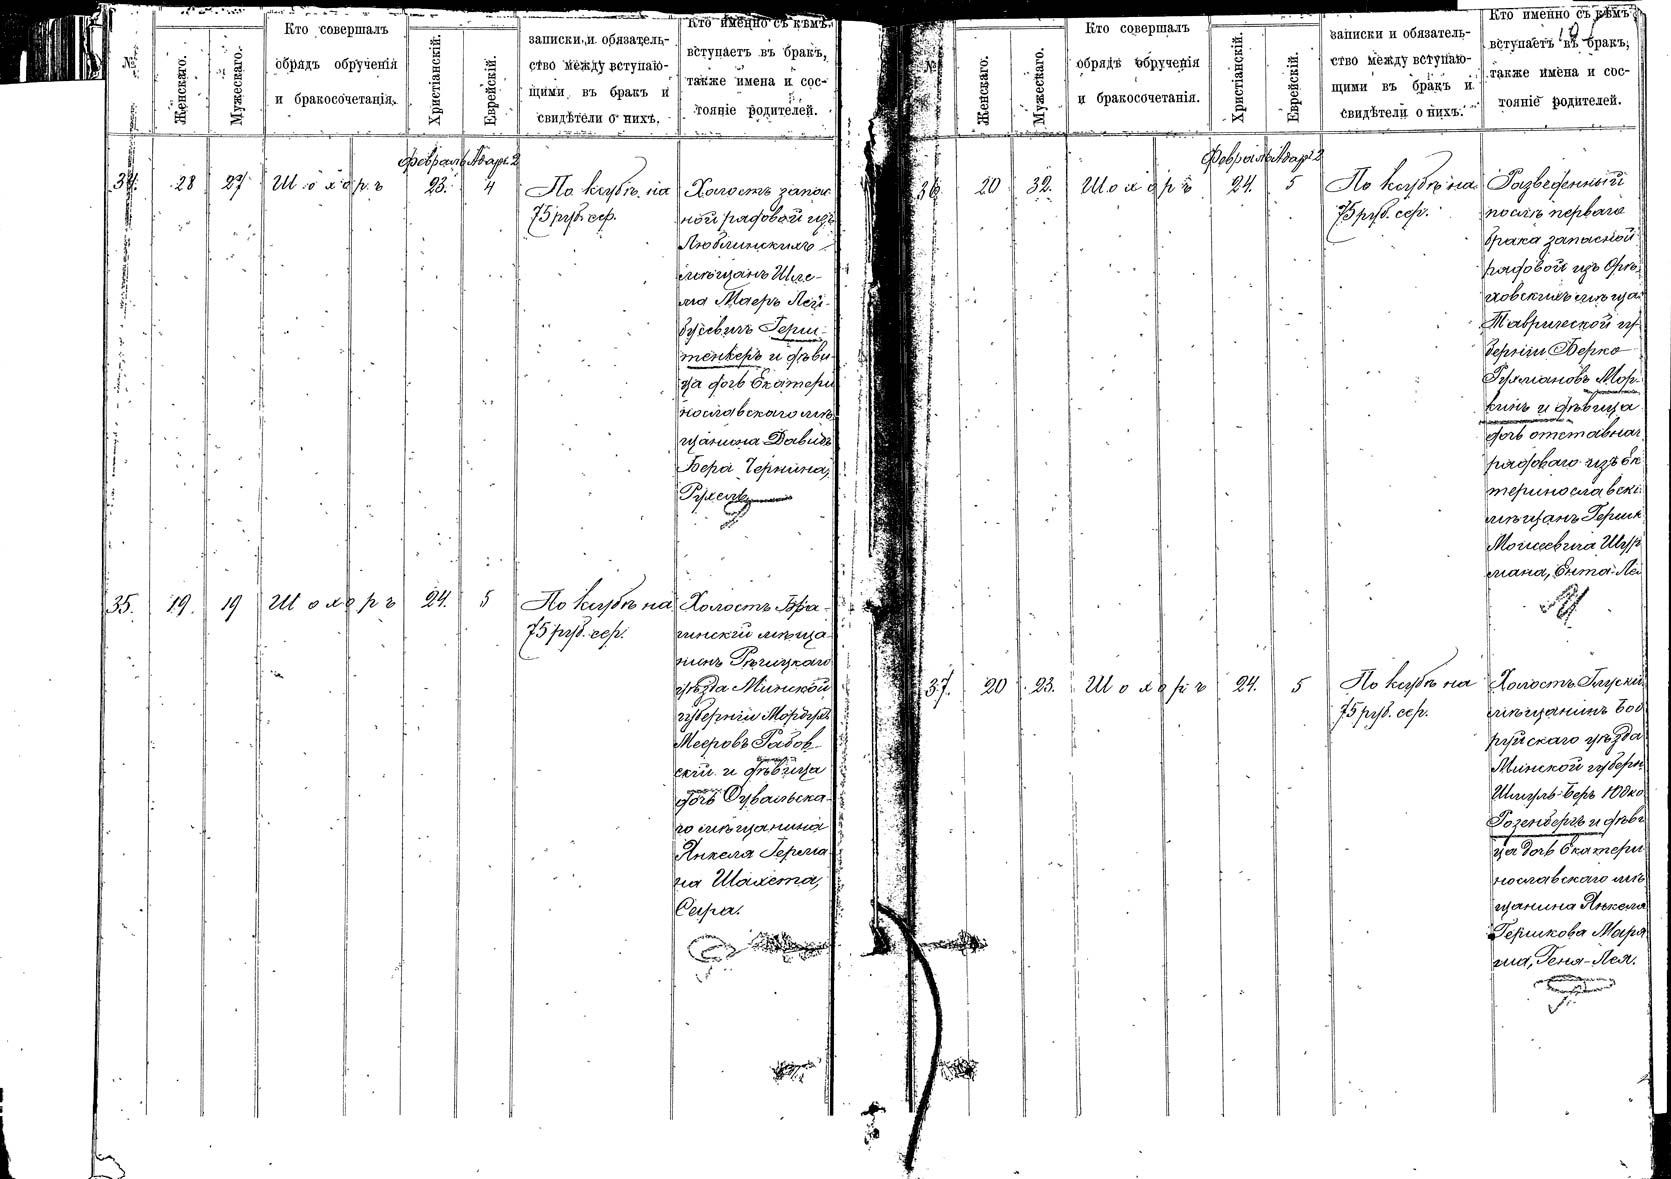 №
Женскаго.
Мужескаго.
Кто совершалъ
обрядъ обрученія
и бракосочетанія.
Христіанскій.
Еврейскій.
записки и обязатель-
ство между вступаю-
щими въ бракъ и
свидѣтели о нихъ.
Кто именно съ кѣмъ
вступаетъ въ бракъ,
также имена и сос-
тояніе родителей.
Февраль Адаръ 2
34. 28 27 Шохоръ 23. 4
По ксубѣ на
75 руб. сер.
Холостъ запас
ной рядовой изъ
Люблинскихъ
мѣщанъ Шле-
ма Маеръ Лей-
бусевичъ Герш-
тенкеръ и дѣви-
ца дочь Екатери
нославскаго мѣ
щанина Давидъ
Бера Чернина,
Рухель
35. 19. 19 Шохоръ 24. 5
По ксубѣ на
75 руб. сер.
Холостъ Бра-
гинскій мѣща-
нинъ Рѣчицкаго
уѣзда Минской
губерніи Мордухъ
Мееровъ Рабов-
скій и дѣвица
дочь Сувальска-
го мѣщанина
Янкеля Герма-
на Шахета,
Сира.
№
Женскаго.
Мужескаго.
Кто совершалъ
обрядъ обрученія
и бракосочетанія.
Христіанскій.
Еврейскій.
записки и обязатель-
ство между вступаю-
щими въ бракъ и
свидѣтели о нихъ.
Кто именно съ кѣмъ
вступаетъ въ бракъ,
также имена и сос-
тояніе родителей.
Февраль Адаръ 2
36. 20 32. Шохоръ 24. 5
По ксубѣ на
75 руб. сер.
Разведенный
послѣ перваго
брака запасной
рядовой изъ Орѣ
ховскихъ мѣща
Таврической гу-
берніи Берко
Рухмановъ Мор-
кинъ и дѣвица
дочь отставнаг
рядоваго изъ Ек
теринославски
мѣщанъ Гершк
Моисеевича Шур
мана, Ента-Ле
37. 20 23. Шохоръ 24. 5
По ксубѣ на
75 руб. сер.
Холостъ Глускій
мѣщанинъ Боб
руйскаго уѣзда
Минской губерн
Шмуль-Беръ Юдко
Розенбергъ и дѣви
ца дочь Екатери
нославскаго мѣ
щанина Янкеля
Гершкова Маря
ша, Геня-Лея.